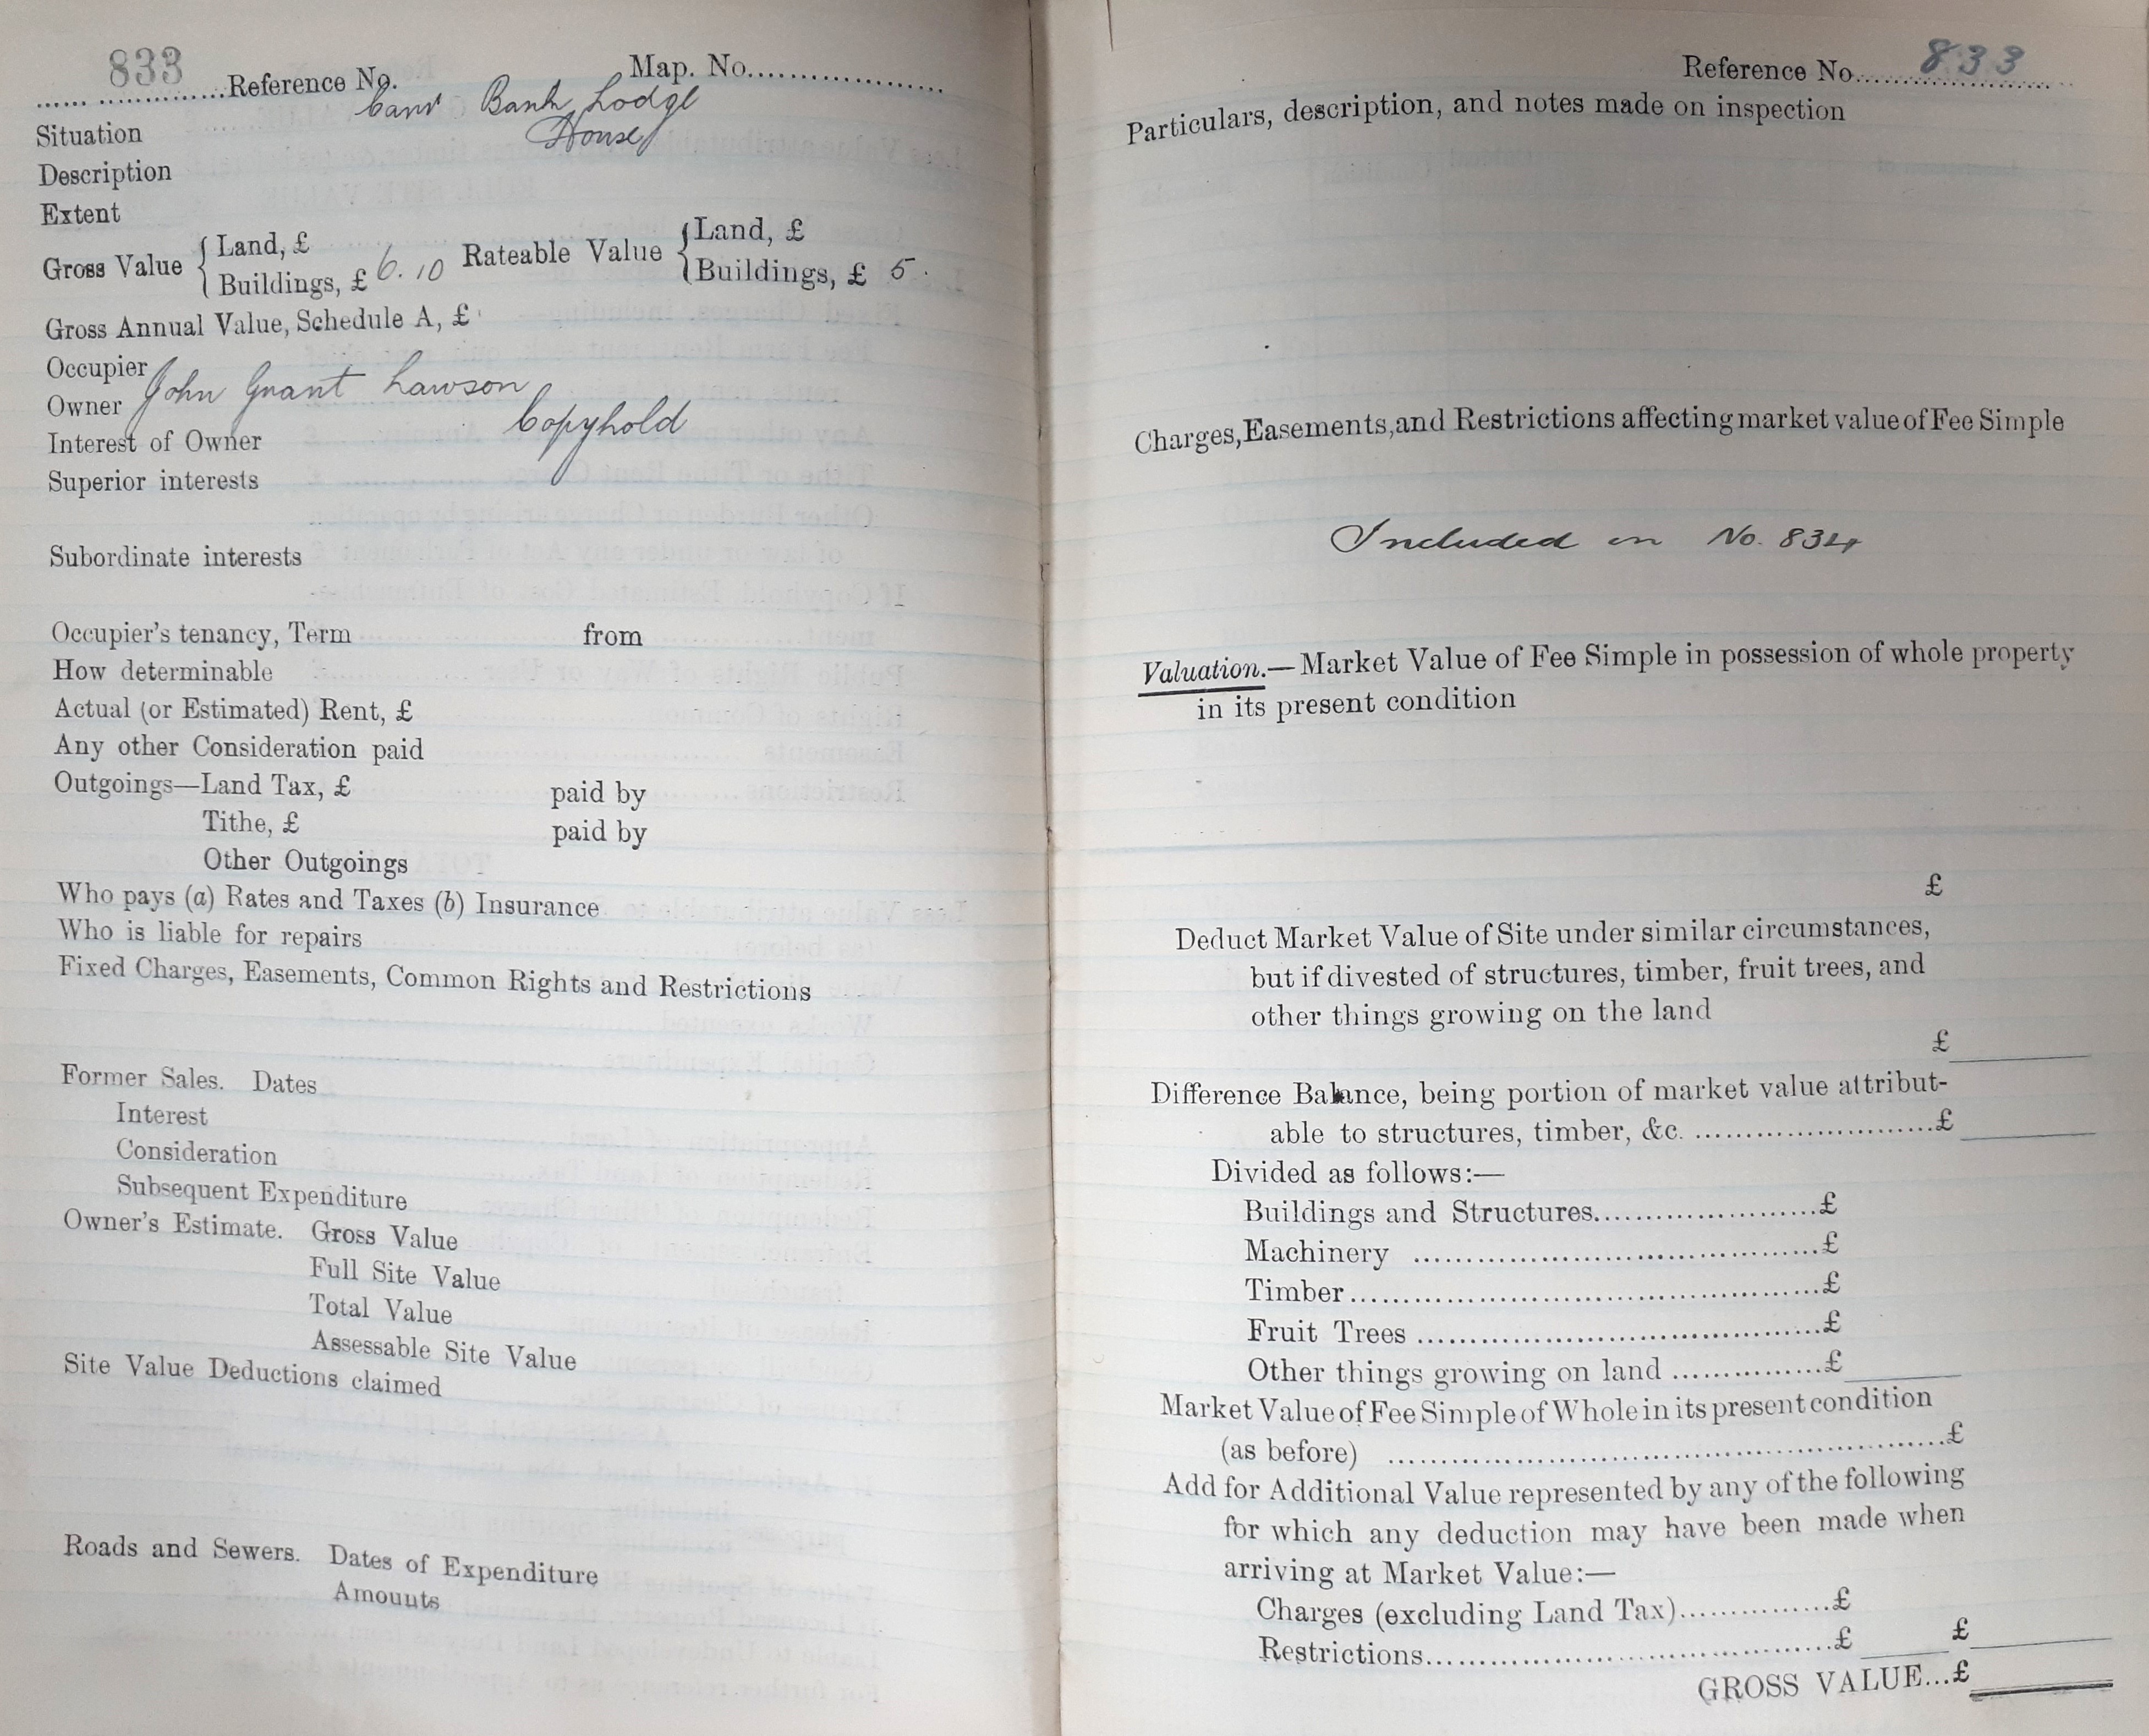 833 Reference No. Map. No.
Situation Carr Bank Lodge
Description House
Extent
Gross Value { Land, £ Rateable Value { Land, £
Buildings, £ 6. 10 Buildings, £ 5.
Gross Annual Value, Schedule A, £
Occupier
Owner John Grant Lawson
Interest of Owner Copyhold
Superior interests
Subordinate interests
Occupier's tenancy, Term from
How determinable
Actual (or Estimated) Rent, £
Any other Consideration paid
Outgoings—Land Tax, £ paid by
Tithe, £ paid by
Other Outgoings
Who pays (a) Rates and Taxes (b) Insurance
Who is liable for repairs
Fixed Charges, Easements, Common Rights and Restrictions
Former Sales. Dates
Interest
Consideration
Subsequent Expenditure
Owner's Estimate. Gross Value
Full Site Value
Total Value
Assessable Site Value
Site Value Deductions claimed
Roads and Sewers. Dates of Expenditure
Amounts
Reference No. 833
Particulars, description, and notes made on inspection
Charges, Easements, and Restrictions affecting market value of Fee Simple
Included in No. 834
Valuation.—Market Value of Fee Simple in possession of whole property
in its present condition
£
Deduct Market Value of Site under similar circumstances,
but if divested of structures, timber, fruit trees, and
other things growing on the land
£
Difference Balance, being portion of market value attribut-
able to structures, timber, &c. £
Divided as follows:—
Buildings and Structures £
Machinery £
Timber £
Fruit Trees £
Other things growing on land £
Market Value of Fee Simple of Whole in its present condition
(as before) £
Add for Additional Value represented by any of the following
for which any deduction may have been made when
arriving at Market Value:—
Charges (excluding Land Tax) £
Restrictions £ £
GROSS VALUE...£